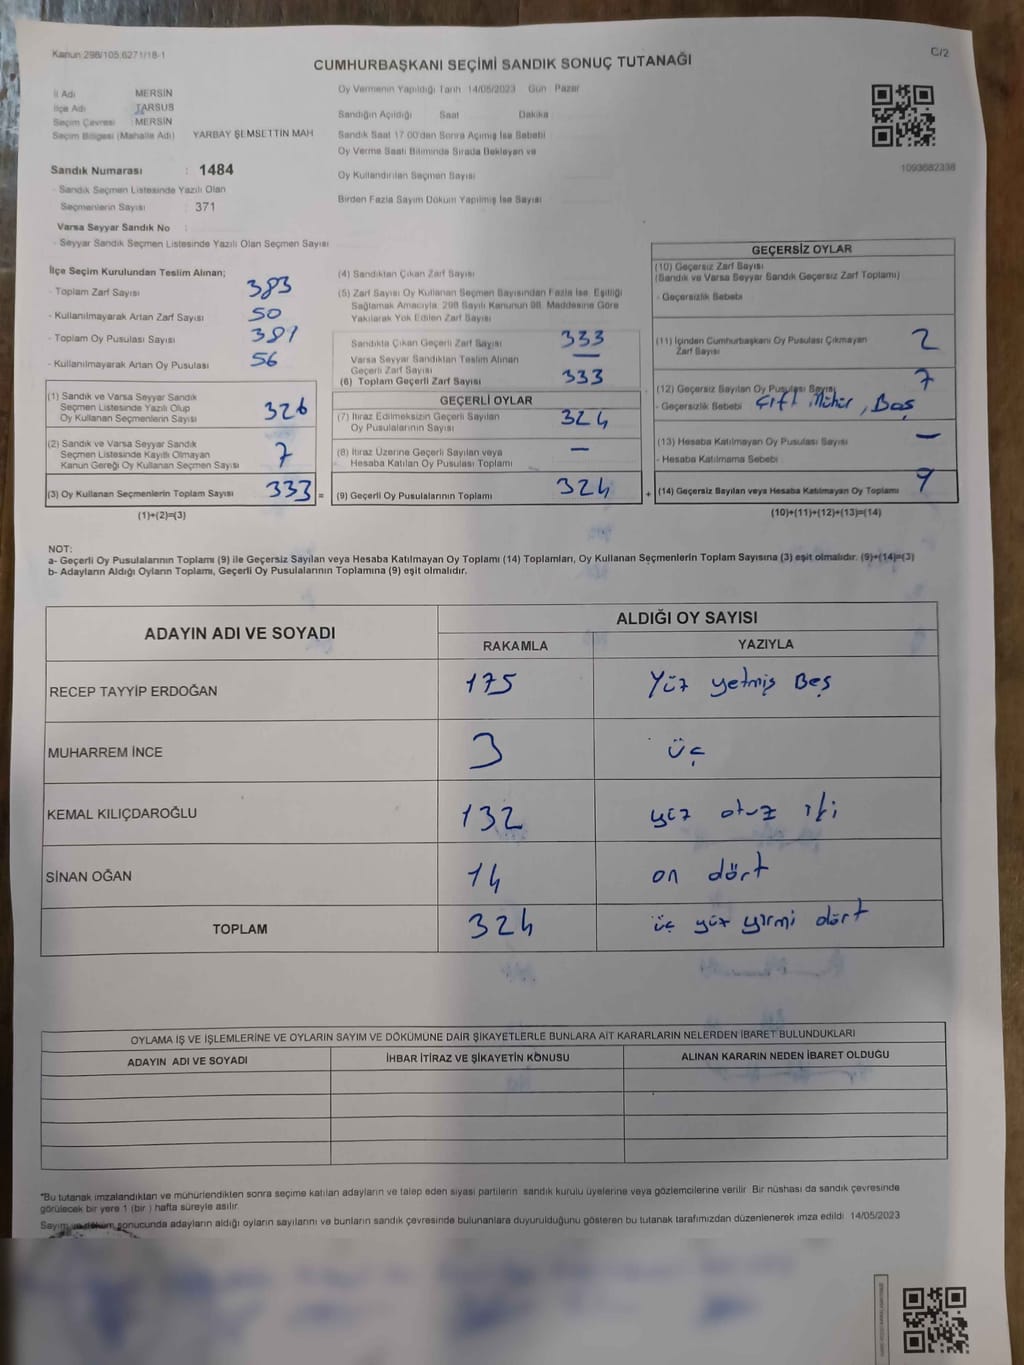 Kanun 298/105.6271/18-1
C/2
CUMHURBAŞKANI SEÇİMİ SANDIK SONUÇ TUTANAĞI
İl Adı MERSİN
İlçe Adı TARSUS
Seçim Çevresi : MERSİN
Seçim Bölgesi (Mahalle Adı) YARBAY ŞEMSETTİN MAH
Sandık Numarası : 1484
- Sandık Seçmen Listesinde Yazılı Olan
Seçmenlerin Sayısı : 371
Varsa Seyyar Sandık No :
- Seyyar Sandık Seçmen Listesinde Yazılı Olan Seçmen Sayısı
Oy Vermenin Yapıldığı Tarih 14/05/2023 Gün Pazar
Sandığın Açıldığı Saat Dakika
Sandık Saat 17.00'den Sonra Açımış İse Sebebi
Oy Verme Saati Bitiminde Sırada Bekleyen ve
Oy Kullandırılan Seçmen Sayısı
Birden Fazla Sayım Döküm Yapılmış İse Sayısı
1093682338
İlçe Seçim Kurulundan Teslim Alınan;
- Toplam Zarf Sayısı 383
- Kullanılmayarak Artan Zarf Sayısı 50
- Toplam Oy Pusulası Sayısı 381
- Kullanılmayarak Artan Oy Pusulası 56
(1) Sandık ve Varsa Seyyar Sandık
Seçmen Listesinde Yazılı Olup
Oy Kullanan Seçmenlerin Sayısı 326
(2) Sandık ve Varsa Seyyar Sandık
Seçmen Listesinde Kayıtlı Olmayan
Kanun Gereği Oy Kullanan Seçmen Sayısı 7
(3) Oy Kullanan Seçmenlerin Toplam Sayısı 333 =
(1)+(2)=(3)
(4) Sandıktan Çıkan Zarf Sayısı
(5) Zarf Sayısı Oy Kullanan Seçmen Sayısından Fazla İse, Eşitliği
Sağlamak Amacıyla, 298 Sayılı Kanunun 98. Maddesine Göre
Yakılarak Yok Edilen Zarf Sayısı
Sandıkta Çıkan Geçerli Zarf Sayısı 333
Varsa Seyyar Sandıktan Teslim Alınan
Geçerli Zarf Sayısı —
(6) Toplam Geçerli Zarf Sayısı 333
GEÇERLİ OYLAR
(7) İtiraz Edilmeksizin Geçerli Sayılan
Oy Pusulalarının Sayısı 324
(8) İtiraz Üzerine Geçerli Sayılan veya
Hesaba Katılan Oy Pusulası Toplamı —
(9) Geçerli Oy Pusulalarının Toplamı 324 +
GEÇERSİZ OYLAR
(10) Geçersiz Zarf Sayısı
(Sandık ve Varsa Seyyar Sandık Geçersiz Zarf Toplamı)
- Geçersizlik Sebebi
(11) İçinden Cumhurbaşkanı Oy Pusulası Çıkmayan
Zarf Sayısı 2
(12) Geçersiz Sayılan Oy Pusulası Sayısı 7
- Geçersizlik Sebebi Çift Mühür, Boş
(13) Hesaba Katılmayan Oy Pusulası Sayısı —
- Hesaba Katılmama Sebebi
(14) Geçersiz Sayılan veya Hesaba Katılmayan Oy Toplamı 9
(10)+(11)+(12)+(13)=(14)
NOT:
a- Geçerli Oy Pusulalarının Toplamı (9) ile Geçersiz Sayılan veya Hesaba Katılmayan Oy Toplamı (14) Toplamları, Oy Kullanan Seçmenlerin Toplam Sayısına (3) eşit olmalıdır. (9)+(14)=(3)
b- Adayların Aldığı Oyların Toplamı, Geçerli Oy Pusulalarının Toplamına (9) eşit olmalıdır.
ADAYIN ADI VE SOYADI ALDIĞI OY SAYISI
RAKAMLA YAZIYLA
RECEP TAYYİP ERDOĞAN 175 Yüz yetmiş Beş
MUHARREM İNCE 3 üç
KEMAL KILIÇDAROĞLU 132 yüz otuz iki
SİNAN OĞAN 14 on dört
TOPLAM 324 üç yüz yirmi dört
OYLAMA İŞ VE İŞLEMLERİNE VE OYLARIN SAYIM VE DÖKÜMÜNE DAİR ŞİKAYETLERLE BUNLARA AİT KARARLARIN NELERDEN İBARET BULUNDUKLARI
ADAYIN ADI VE SOYADI İHBAR İTİRAZ VE ŞİKAYETİN KONUSU ALINAN KARARIN NEDEN İBARET OLDUĞU
*Bu tutanak imzalandıktan ve mühürlendikten sonra seçime katılan adayların ve talep eden siyasi partilerin sandık kurulu üyelerine veya gözlemcilerine verilir. Bir nüshası da sandık çevresinde
görülecek bir yere 1 (bir) hafta süreyle asılır.
Sayım ve döküm sonucunda adayların aldığı oyların sayılarını ve bunların sandık çevresinde bulunanlara duyurulduğunu gösteren bu tutanak tarafımızdan düzenlenerek imza edildi. 14/05/2023